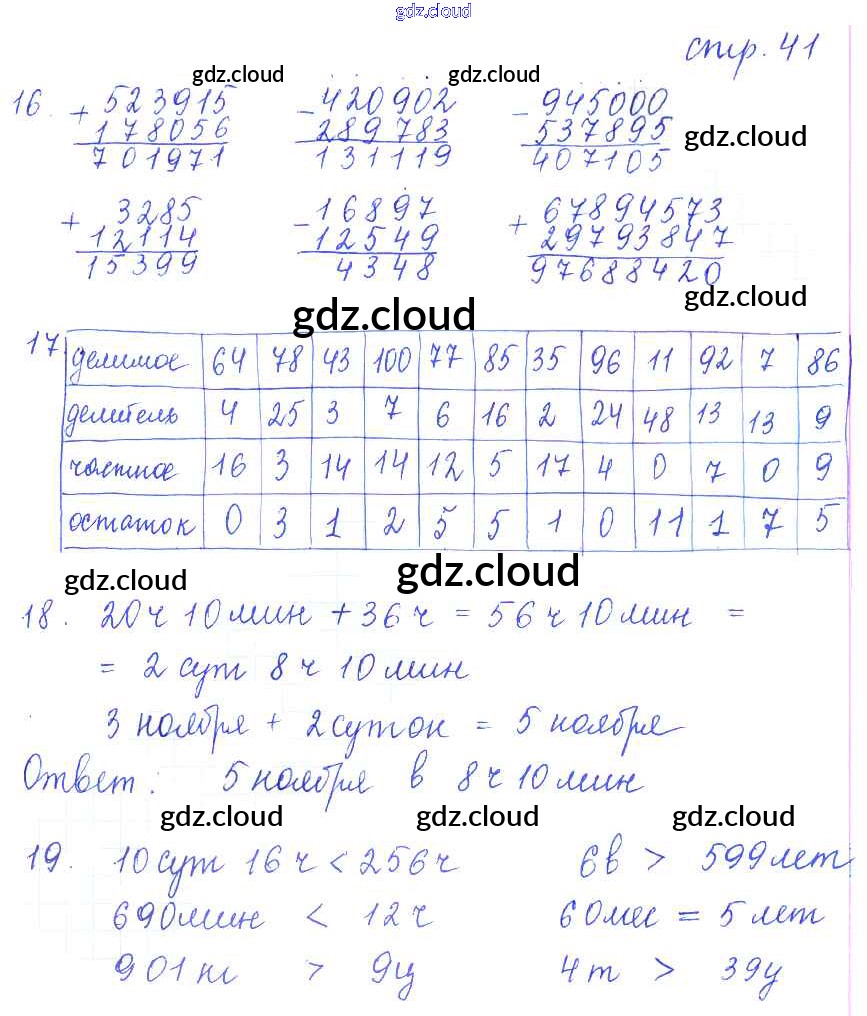 gdz.cloud
стр. 41
gdz.cloud gdz.cloud
16. + 523915 - 420902 - 945000
178056 289783 537895 gdz.cloud
701971 131119 407105
+ 3285 - 16897 + 67894573
12114 12549 29793847
15399 4348 97688420
gdz.cloud
gdz.cloud
17 делимое 64 78 43 100 77 85 35 96 11 92 7 86
делитель 4 25 3 7 6 16 2 24 48 13 13 9
частное 16 3 14 14 12 5 17 4 0 7 0 9
остаток 0 3 1 2 5 5 1 0 11 1 7 5
gdz.cloud gdz.cloud
18. 20 ч 10 мин + 36 ч = 56 ч 10 мин =
= 2 сут 8 ч 10 мин
3 ноября + 2 суток = 5 ноября
Ответ: 5 ноября в 8 ч 10 мин
gdz.cloud gdz.cloud gdz.cloud
19. 10 сут 16 ч < 256 ч 6 в > 599 лет
690 мин < 12 ч 60 мес = 5 лет
901 кг > 9 ц 4 т > 39 ц